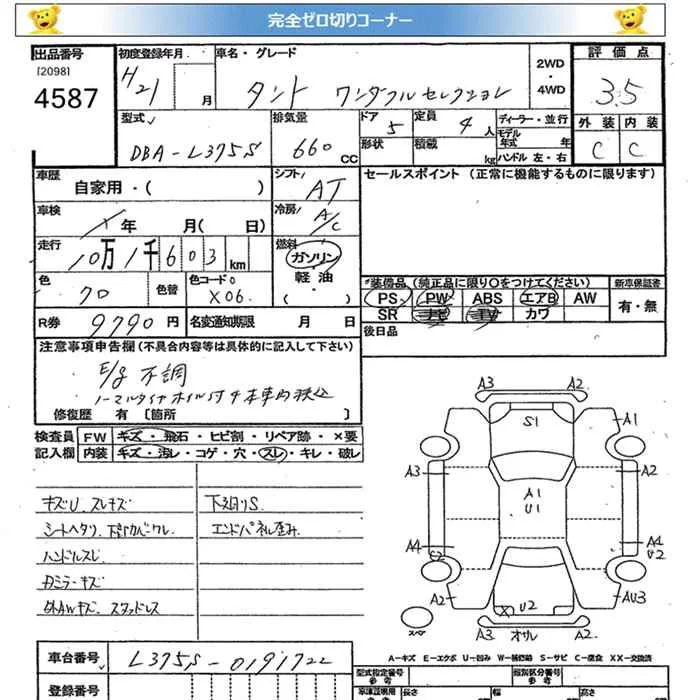 完全ゼロ切りコーナー
出品番号
[2098]
4587
初度登録年月
H21
月
車名・グレード
タント ワンダフルセレクション
2WD
・
4WD
評価点
3.5
型式
DBA-L375S
排気量
660
CC
ドア
5
定員
4
人
形状
積載
kg
ディーラー・並行
モデル
年式
年
ハンドル 左・右
外装
内装
C
C
車歴
自家用・( )
シフト
AT
セールスポイント (正常に機能するものに限ります)
車検
年 月( 日)
冷房
A/C
走行
10万1千603
km
燃料
ガソリン
軽油
・
( )
色
クロ
色替
色コードNo
X06
装備品 (純正品に限り○をつけてください)
新車保証書
PS PW ABS エアB AW
有・無
SR ナビ TV カワ
R券
9790円
名変通知期限
月 日
後日品
注意事項申告欄 (不具合内容等は具体的に記入して下さい)
E/g 不調
ノーマルタイヤホイル付4本車内積込
修復歴 有 〔箇所 〕
検査員
記入欄
FW
キズ・飛石・ヒビ割・リペア跡・×要
内装
キズ・汚レ・コゲ・穴・スレ・キレ・破レ
キズU. スレキズ
下廻りS
シートヘタリ.
エンドパネル歪み
ハンドルスレ
Dミラーキズ
外AWキズ. スタッドレス
A3
A2
S1
A1
A3
A2
A1
U1
A4
A4
U2
A2
X
U2
AU3
スペア
A3
オサル
A2
A－キズ E－エクボ U－凹み W－補修跡 S－サビ C－腐食 XX－交換済
車台番号
L375S-0191722
登録番号
型式指定番号
参考
類別区分番号
参考
車庫証明用
長さ
幅
高さ